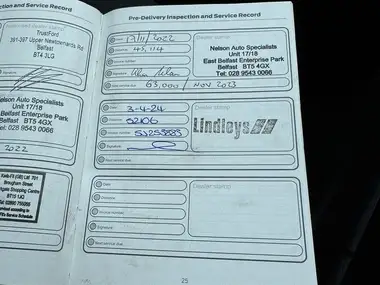 Pre-Delivery Inspection and Service Record
TrustFord
391-397 Upper Newtownards Rd
Belfast
BT4 3LG
Signature
Nelson Auto Specialists
Unit 17/18
East Belfast Enterprise Park
Belfast BT5 4GX
Tel: 028 9543 0066
2022
Kwik-Fit (GB) Ltd 701
Brougham Street
BT15 1JQ
Date 17/11/2022
45,114
Signature
Next service due 63,000 / NOV 2023
Dealer stamp
Nelson Auto Specialists
Unit 17/18
East Belfast Enterprise Park
Belfast BT5 4GX
Tel: 028 9543 0066
Date 3-4-24
52106
SJ253883
Signature
Next service due
Dealer stamp
Lindleys
Date
Odometer
Invoice number
Signature
Next service due
Dealer stamp
25